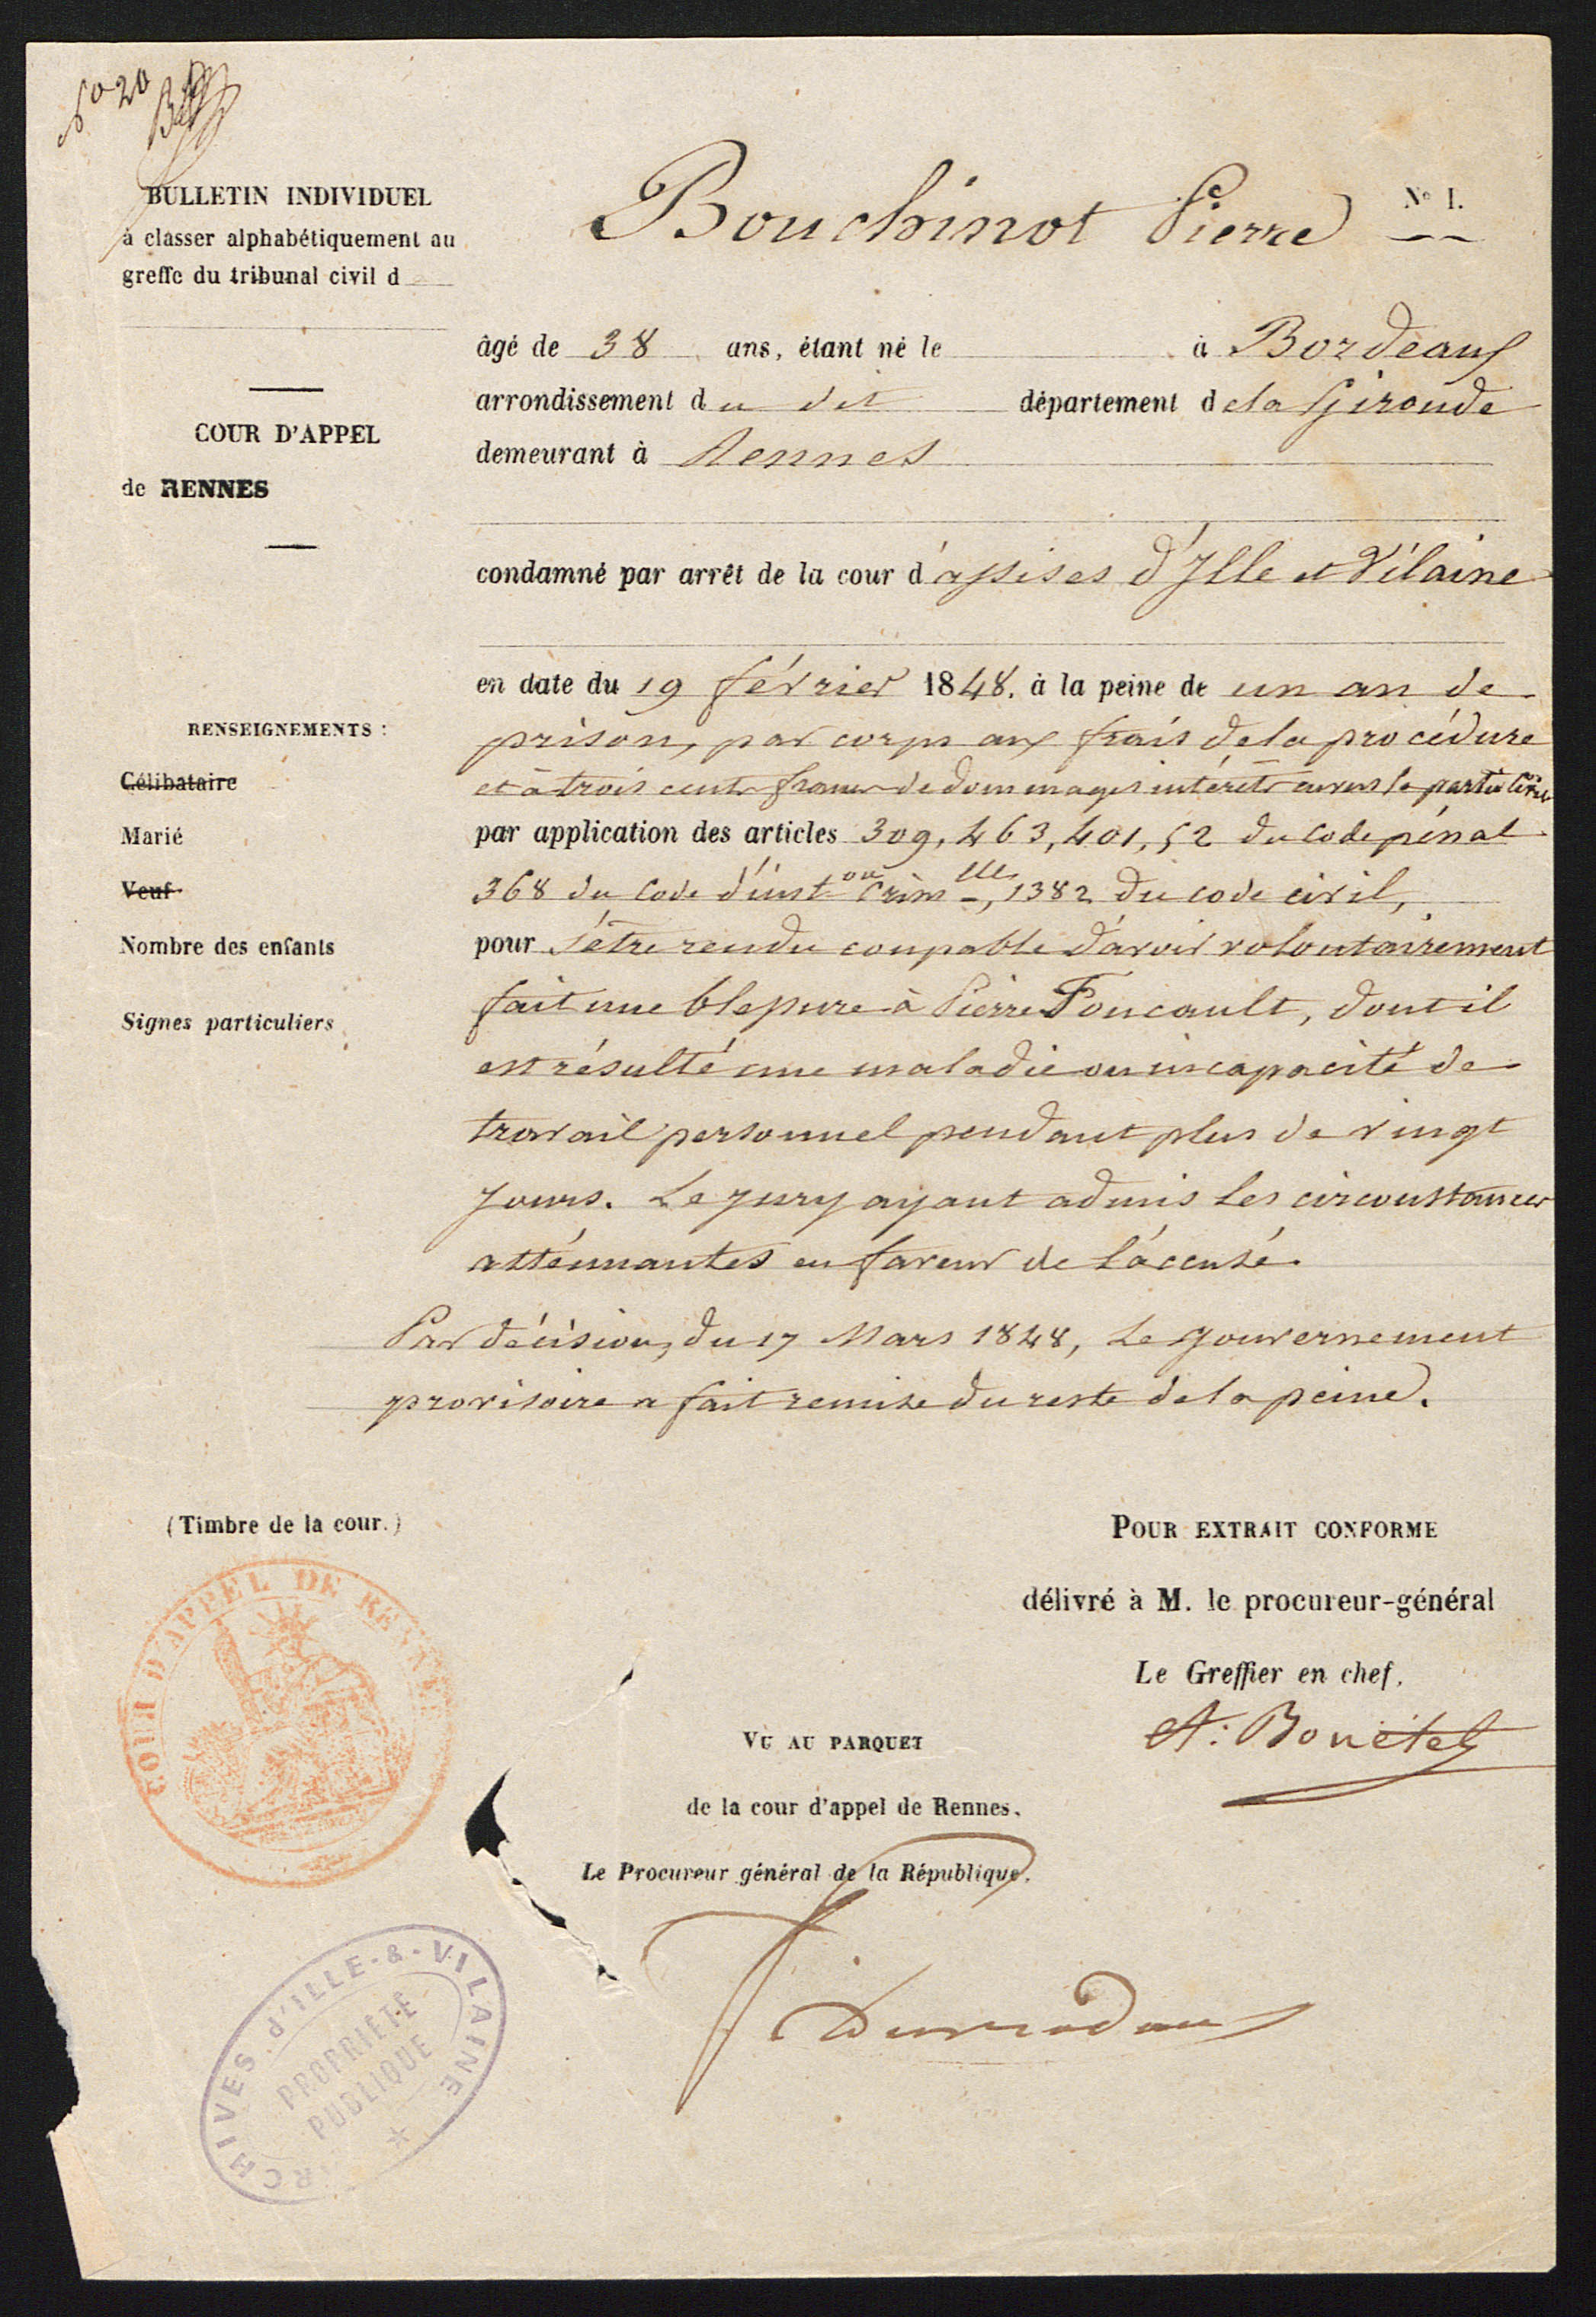 No 20
BULLETIN INDIVIDUEL
à classer alphabétiquement au
greffe du tribunal civil d
COUR D'APPEL
de RENNES
RENSEIGNEMENTS :
Célibataire
Marié
Veuf
Nombre des enfants
Signes particuliers
Bouchinot Pierre
No 1.
âgé de 38 ans, étant né le à Bordeaux
arrondissement du dit département de la Gironde
demeurant à Rennes
condamné par arrêt de la cour d'assises d'Ille et Vilaine
en date du 19 février 1848, à la peine de un an de
prison, par corps aux frais de la procédure
et à trois cents francs de dommages intérêts envers la partie Civile
par application des articles 309, 463, 401, 52 du Code pénal
368 du Code d'inston Crimelle, 1382 du code civil,
pour s'être rendu coupable d'avoir volontairement
fait une blessure à Pierre Foucault, dont il
est résulté une maladie ou incapacité de
travail personnel pendant plus de vingt
jours. Le jury ayant admis les circonstances
atténuantes en faveur de l'accusé.
Par décision, du 17 Mars 1848, le gouvernement
provisoire a fait remise du reste de la peine.
(Timbre de la cour.)
COUR D'APPEL DE RENNES
POUR EXTRAIT CONFORME
délivré à M. le procureur-général
Le Greffier en chef,
A. Bouëtel
VU AU PARQUET
de la cour d'appel de Rennes,
Le Procureur général de la République,
ARCHIVES d'ILLE-&-VILAINE
PROPRIÉTÉ
PUBLIQUE